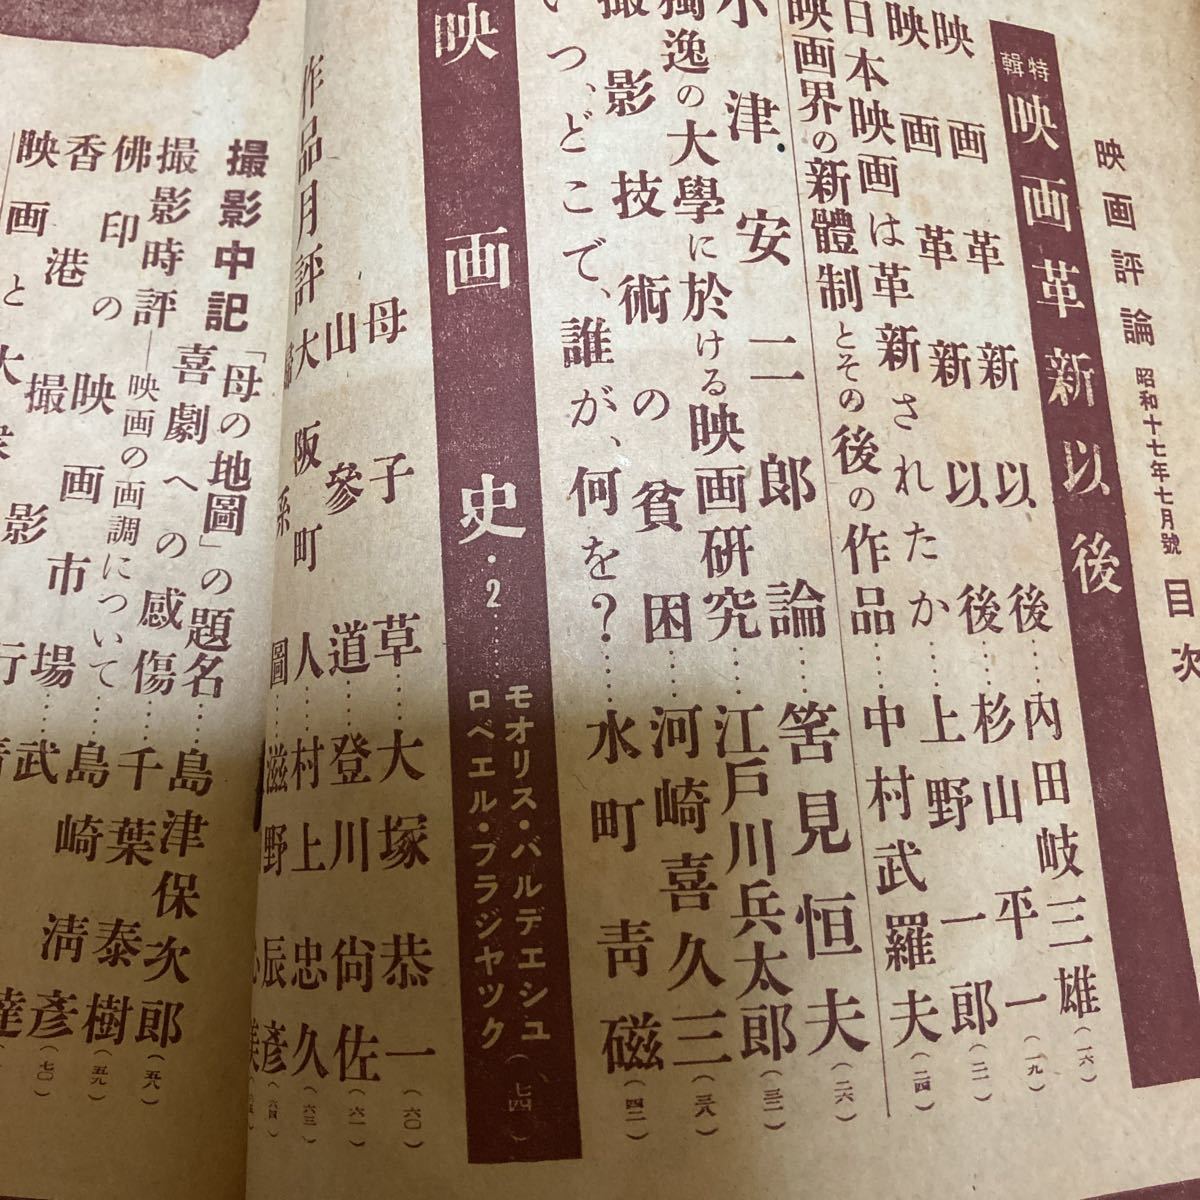 映画評論 昭和十七年七月號 目次
特輯 映画革新以後
映画革新以後……内田岐三雄(一六)
映画革新以後……杉山平一(一九)
映画革新以後……上野一郎(二一)
日本映画は革新されたか
映画界の新體制とその後の作品……中村武羅夫(二四)
小津安二郎論……筈見恒夫(二六)
獨逸の大學に於ける映画研究……江戸川兵太郎(三二)
撮影技術の貧困……河崎喜久三(三八)
いつ、どこで、誰が、何を?……水町青磁(四二)
映画史・2……モオリス・バルデエシュ ロベエル・ブラジャック(七四)
作品月評
母子草……大塚恭一(六〇)
山參道……登川尙佐(六一)
大阪町人……村上忠久(六三)
系圖……滋野辰彥(六四)
撮影中記
「母の地圖」の題名……島津保次郎(五八)
喜劇への感傷……千葉泰樹(五九)
撮影時評—映画の画調について……島崎淸彥(七〇)
佛印の映画市場……武
香港撮影行
映画と大